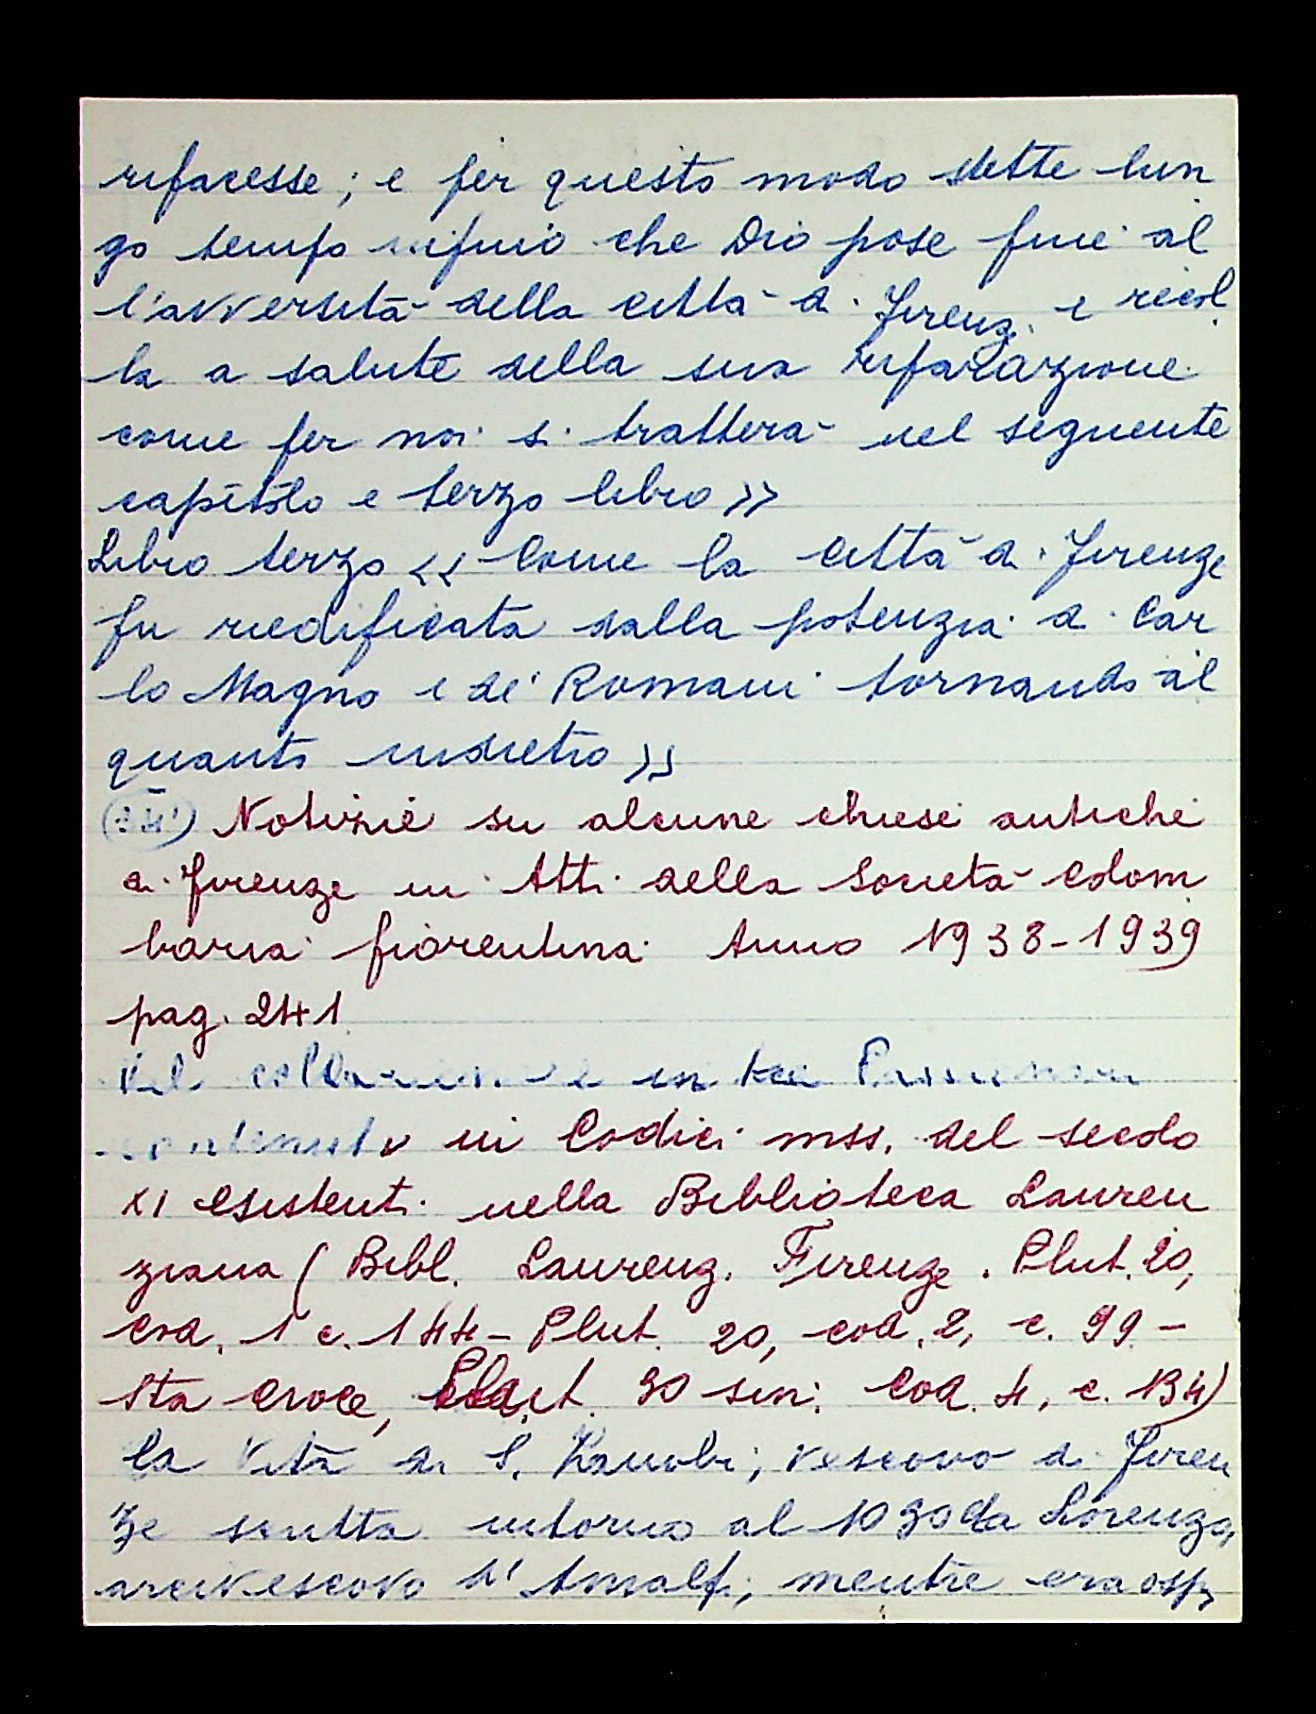 rifacesse; e per questo modo stette lun
go tempo infino che Dio pose fine al
l'avversità della città di Firenz. e recol
la a salute della sua riparazione
come per noi si tratterà nel seguente
capitolo e terzo libro >>
Libro terzo << Come la città di Firenze
fu riedificata dalla potenzia di Car
lo Magno e de' Romani tornando al
quanto indietro >>
Notizie su alcune chiese antiche
di Firenze in Atti della Società Colom
baria fiorentina Anno 1938-1939
pag. 241
in tre Passionari
contenuto in Codici mss. del secolo
XI esistenti nella Biblioteca Lauren
ziana (Bibl. Laurenz. Firenze. Plut. 20,
cod. 1 c. 144 - Plut. 20, cod. 2, c. 99 -
Sta Croce, Plut. 30 sin. Cod. 4, c. 134)
la Vita di S. Zanobi, vescovo di Firen
ze scritta intorno al 1030 da Lorenzo,
arcivescovo d'Amalfi, mentre era osp